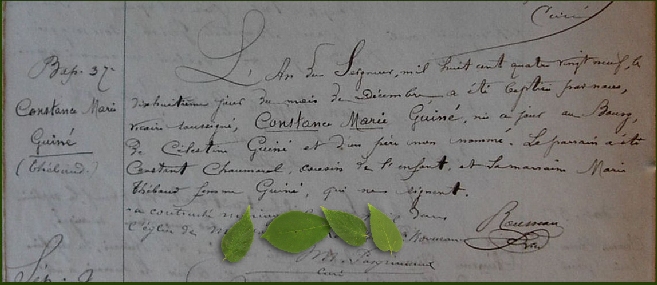 Curé
Bap. 37
Constance Marie
Guiné
(Thébaud.)
L'An du Seigneur, mil huit cent quatre vingt neuf, le
dixhuitième jour du mois de Décembre a été baptisé par nous,
vicaire soussigné, Constance Marie Guiné, né ce jour au Bourg,
de Célestine Guiné et d'un père non nommé. Le parrain a été
Constant Chaumeral, cousin de l'enfant, et la marraine Marie
Thébaud femme Guiné, qui ne signent.
a contracté mariage dans
l'église de
Rousseau
Curé